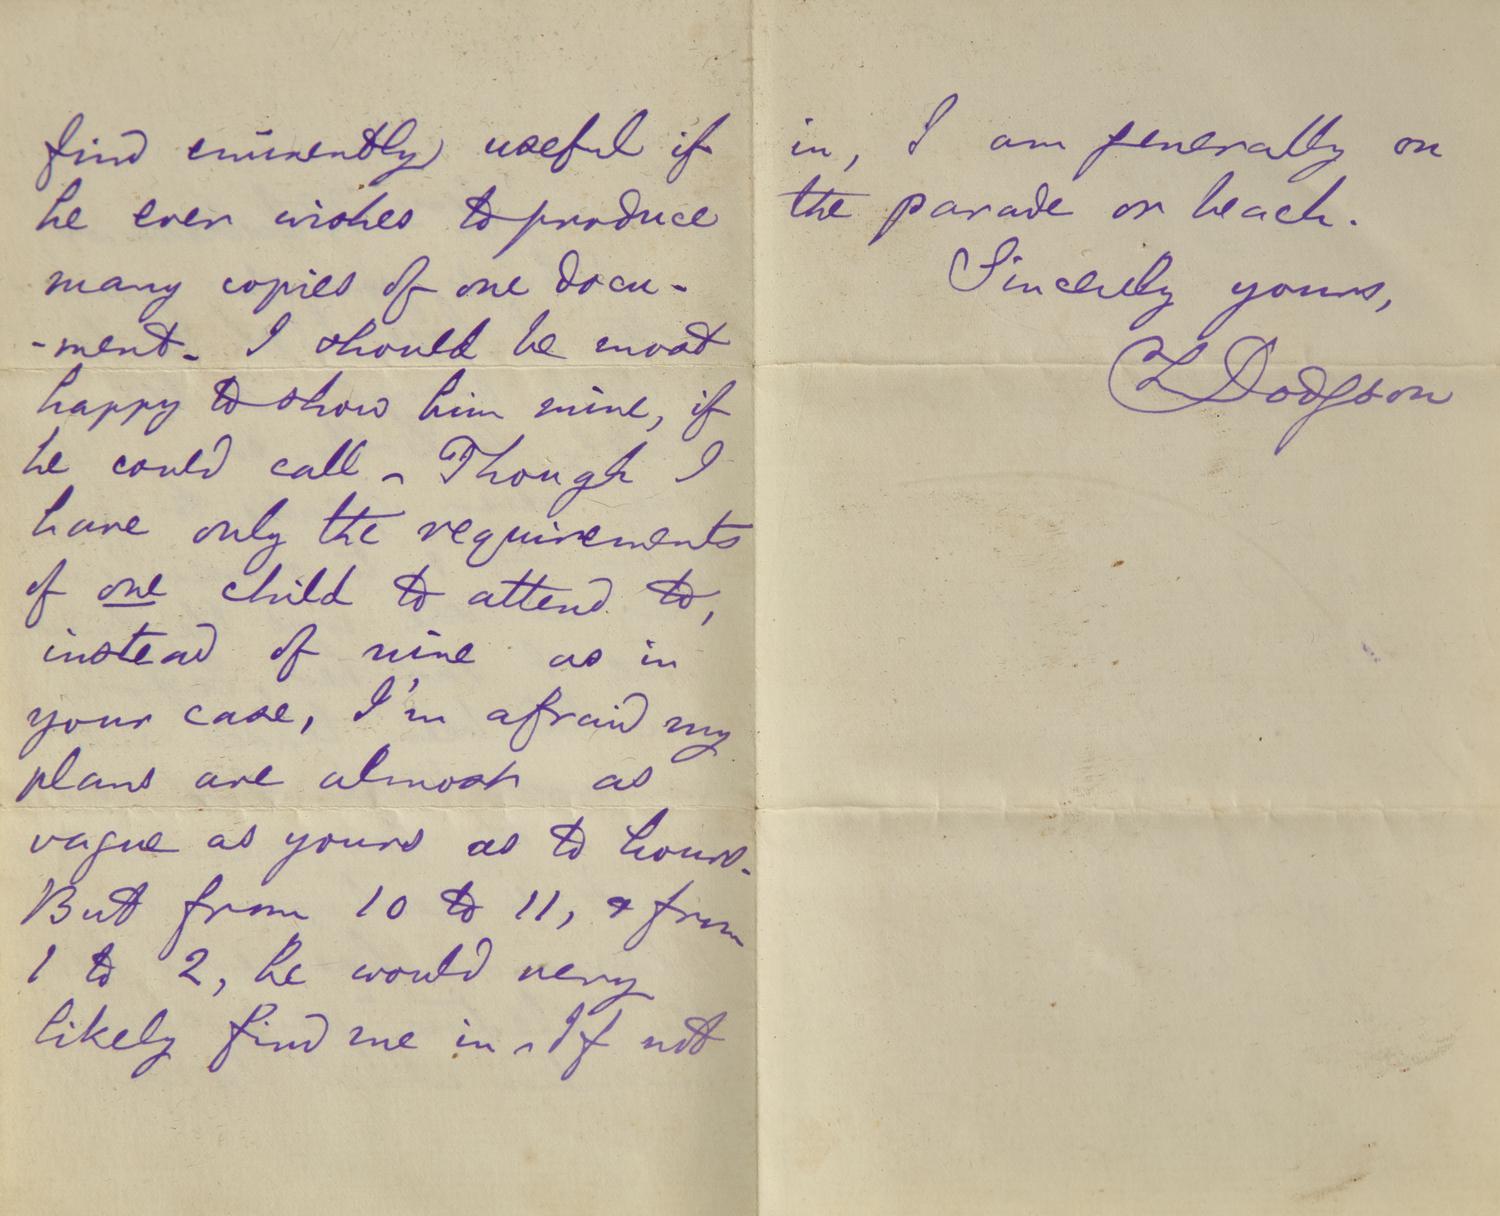 find eminently useful if
he ever wishes to produce
many copies of one docu-
-ment. I should be most
happy to show him mine, if
he could call. Though I
have only the requirements
of one child to attend to,
instead of nine as in
your case, I'm afraid my
plans are almost as
vague as yours as to hours.
But from 10 to 11, & from
1 to 2, he would very
likely find me in. If not
in, I am generally on
the parade or beach.
Sincerely yours,
CL Dodgson